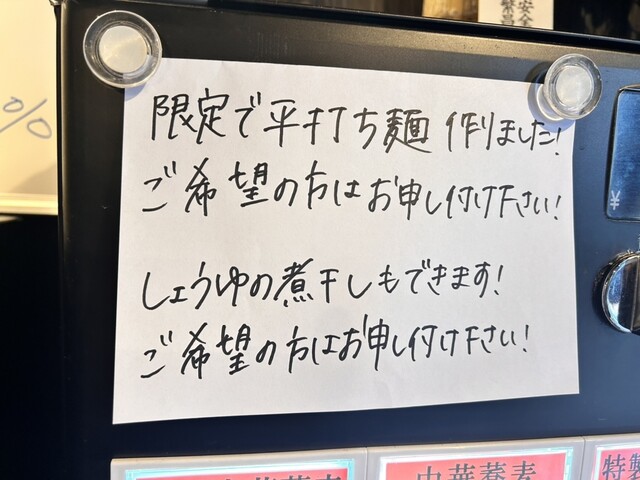 限定で平打ち麺作りました!
ご希望の方はお申し付け下さい!
しょうゆの煮干しもできます!
ご希望の方はお申し付け下さい!
%
安全
¥
中華蕎麦
特製